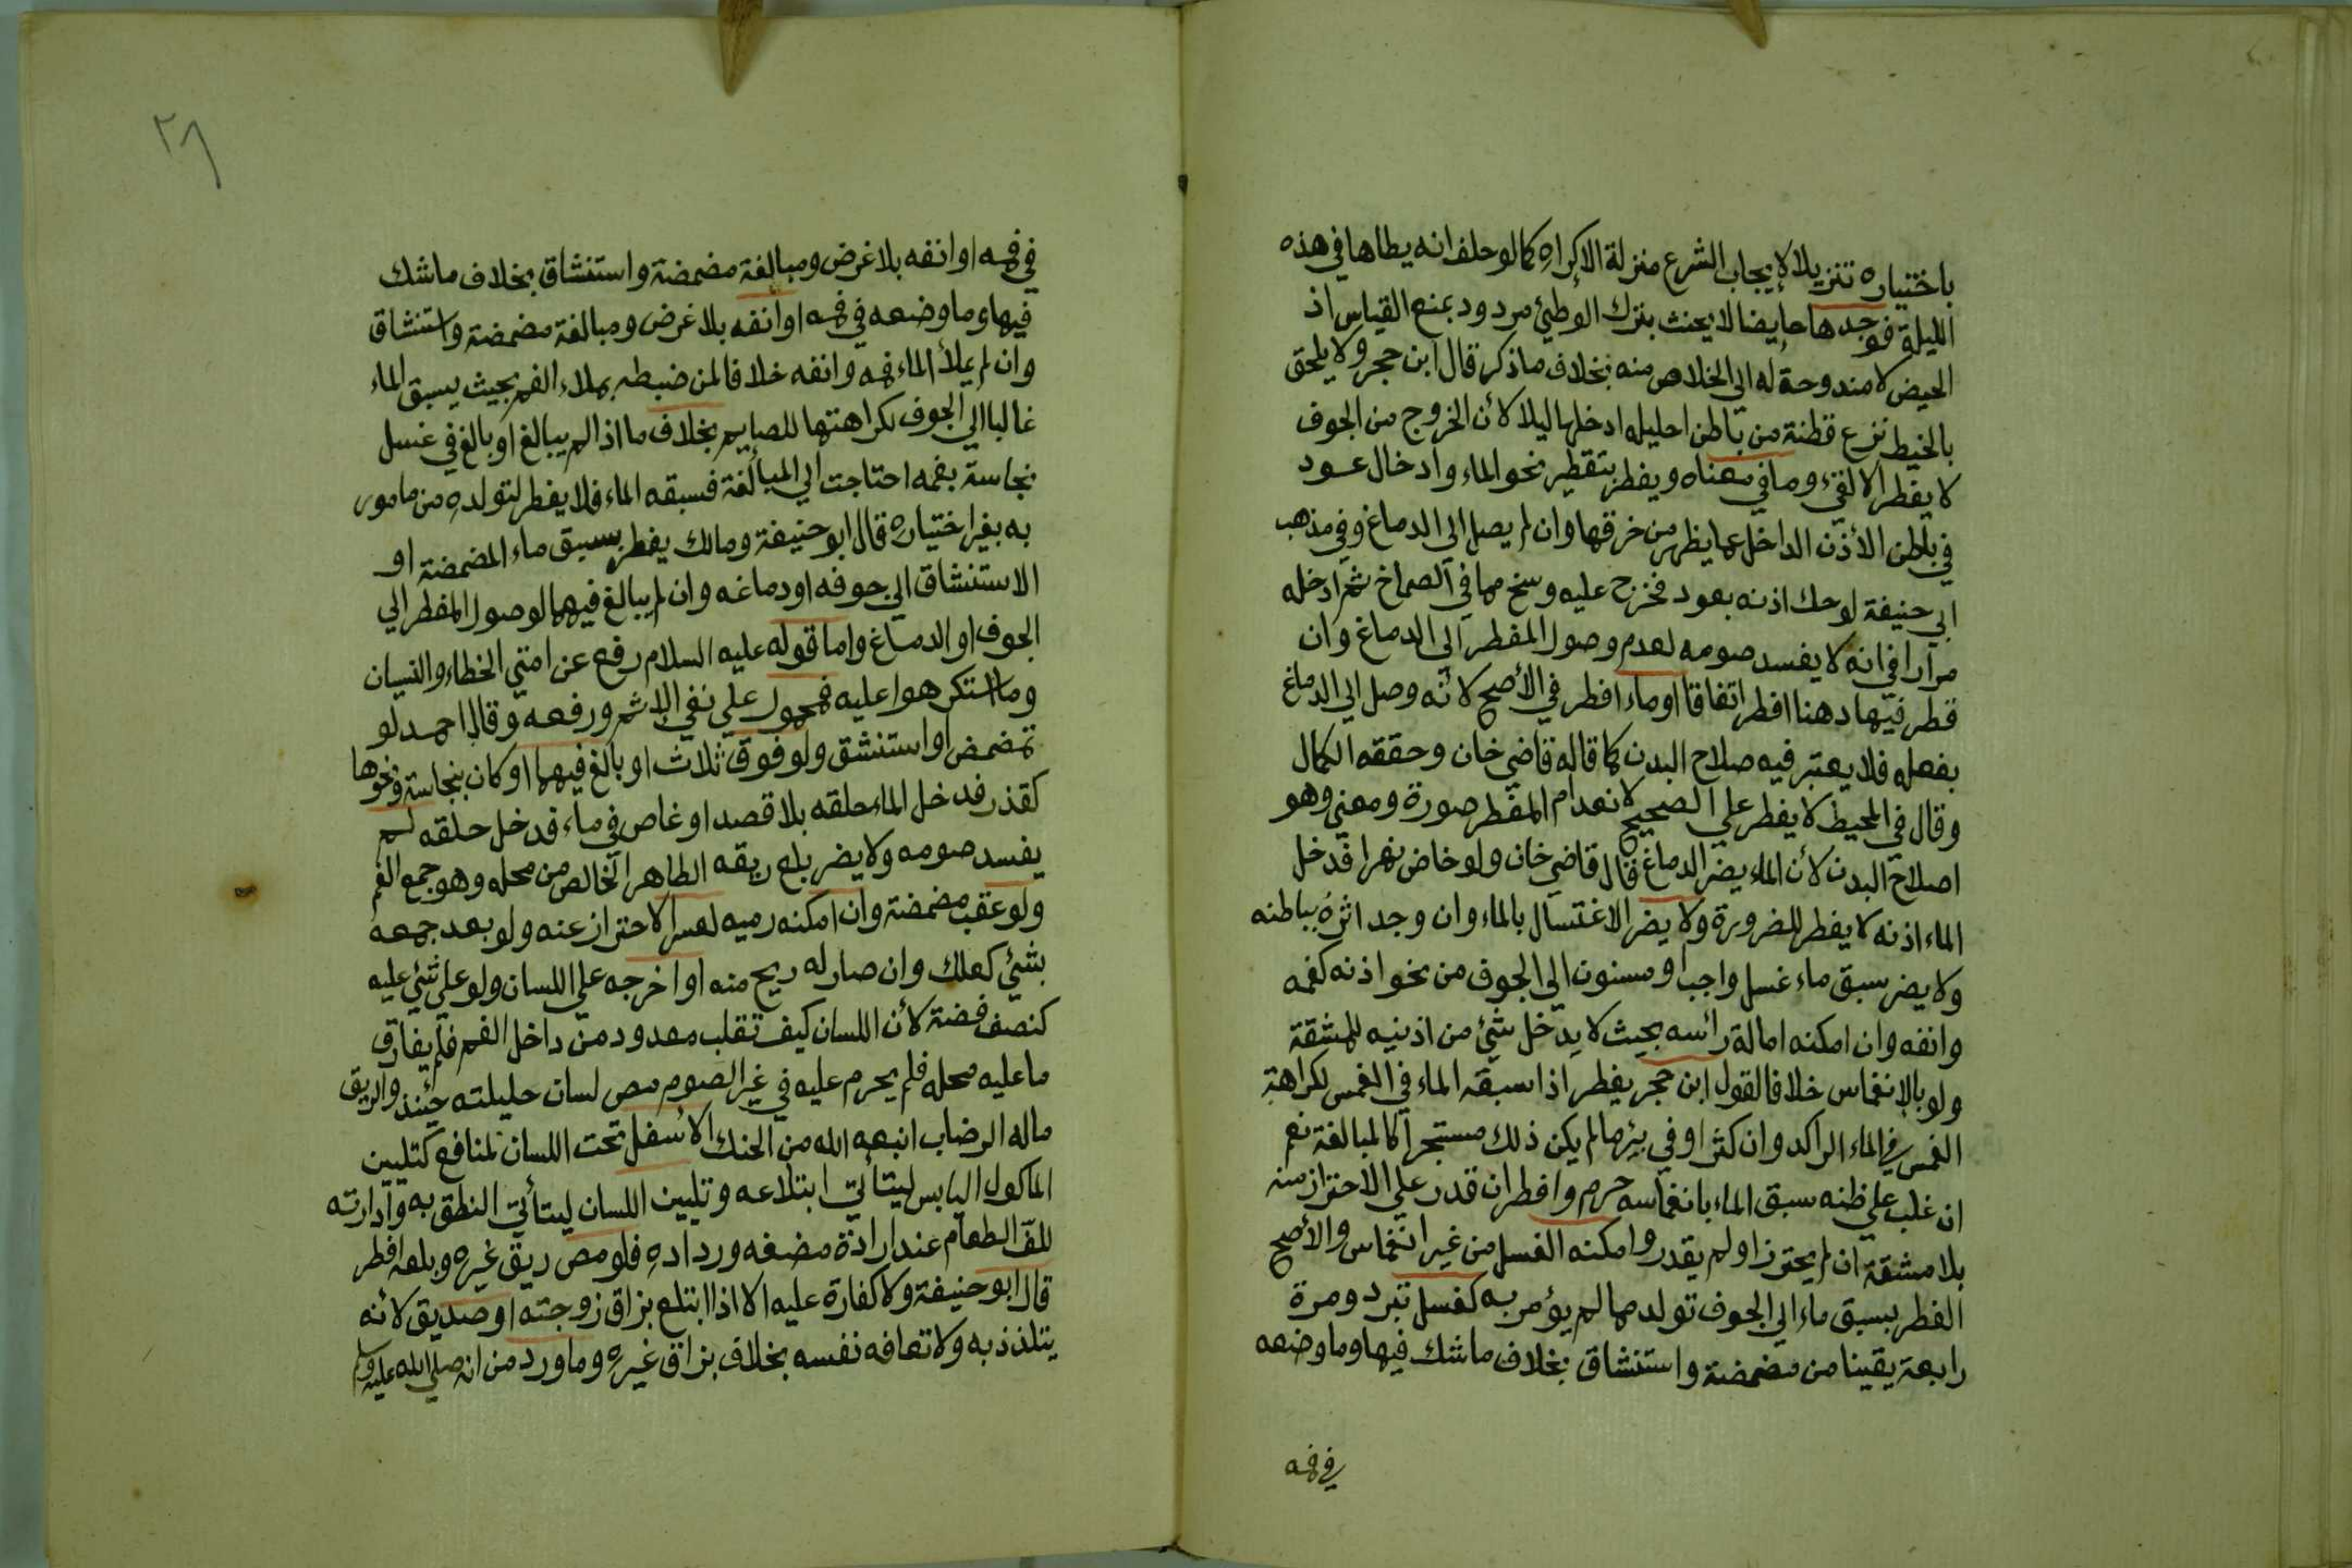 باختياره تنزيلا لإيجاب الشرع منزلة الإكراه كما لو حلف انه يطاها في هذه
الليلة فوجدها حايضا لا يحنث بترك الوطئ مردود بمنع القياس اذ
الحيض لا مندوحة له الى الخلاص منه بخلاف ماذكر قال ابن حجر ولا يلحق
بالخيط نزع قطنة من باطن احليله ادخلها ليلا لأن الخروج من الجوف
لا يفطر الا لقيء وما في معناه ويفطر بتقطير نحو الماء وادخال عود
في باطن الأذن الداخل عما يظهر من خرقها وان لم يصل الى الدماغ وفي مذهب
ابي حنيفة لو حك اذنه بعود فخرج عليه وسخ مما في الصماخ ثم ادخله
مرارا في انه لا يفسد صومه لعدم وصول المفطر الى الدماغ وان
قطر فيها دهنا افطر اتفاقا او ماء افطر في الأصح لانه وصل الى الدماغ
بفعله فلا يعتبر فيه صلاح البدن كما قاله قاضي خان وحققه الكمال
وقال في المحيط لا يفطر على الصحيح لانعدام المفطر صورة ومعنى وهو
اصلاح البدن لأن الماء يضر الدماغ قال قاضي خان ولو خاض نهرا فدخل
الماء اذنه لا يفطر للضرورة ولا يضر الاغتسال بالماء وان وجد اثره بباطنه
ولا يضر سبق ماء غسل واجب او مسنون الى الجوف من نحو اذنه كفمه
وانفه وان امكنه امالة رائسه بحيث لا يدخل شئ من اذنيه للمشقة
ولو بالإنغماس خلافا لقول ابن حجر يفطر اذا سبقه الماء في الغمس لكراهة
الغمس في الماء الراكد وان كثر او في بئر ما لم يكن ذلك مستبحرا كالمبالغة نعم
ان غلب على ظنه سبق الماء بانغماسه حرم وافطر ان قدر على الاحتراز منه
بلا مشقة ان لم يحترز او لم يقدر وامكنه الغسل من غير انغماس والأصح
الفطر بسبق ماء الى الجوف تولد مما لم يؤمر به كغسل تبرد ومرة
رابعة يقينا من مضمضة واستنشاق بخلاف ماشك فيها وما وضعه
في فمه
٢٨
في فمه او انفه بلا غرض ومبالغة مضمضة واستنشاق بخلاف ماشك
فيها وما وضعه في فمه او انفه بلا غرض ومبالغة مضمضة واستنشاق
وان لم يملأ الماء فمه وانفه خلافا لمن ضبطه بملاء الفم بحيث يسبق الماء
غالبا الى الجوف لكراهتها للصايم بخلاف ما اذا لم يبالغ او بالغ في غسل
نجاسة بفمه احتاجت الى المبالغة فسبقه الماء فلا يفطر لتولده من مامور
به بغير اختياره قال ابو حنيفة ومالك يفطر بسبق ماء المضمضة او
الاستنشاق الى جوفه او دماغه وان لم يبالغ فيهما لوصول المفطر الى
الجوف او الدماغ واما قوله عليه السلام رفع عن امتي الخطاء والنسيان
وما استكرهوا عليه فمحمول على نفي الاثم ورفعه وقال احمد لو
تمضمض او استنشق ولو فوق ثلاث او بالغ فيهما او كان بنجاسة ونحوها
كقذر فدخل الماء حلقه بلا قصد او غاص في ماء فدخل حلقه لم
يفسد صومه ولا يضر بلع ريقه الطاهر الخالص من محله وهو جمع الفم
ولو عقب مضمضة وان امكنه رميه لعسر الاحتراز عنه ولو بعد جمعه
بشئ كعلك وان صار له ريح منه او اخرجه على اللسان ولو على شئ عليه
كنصف فضة لأن اللسان كيف تقلب معدود من داخل الفم فلم يفارق
ماعليه محله فلم يحرم عليه في غير الصوم مص لسان حليلته حينئذ والريق
ماله الرضاب انبعه الله من الحنك الأسفل تحت اللسان لمنافع كتليين
الماكول اليابس ليتأتى ابتلاعه وتليين اللسان ليتأتى النطق به وادارته
للف الطعام عند ارادة مضغه ورداده فلو مص ريق غيره وبلعه افطر
قال ابو حنيفة ولا كفارة عليه الا اذا ابتلع بزاق زوجته او صديق لانه
يتلذذ به ولا تعافه نفسه بخلاف بزاق غيره وماورد من انه صلى الله عليه وسلم